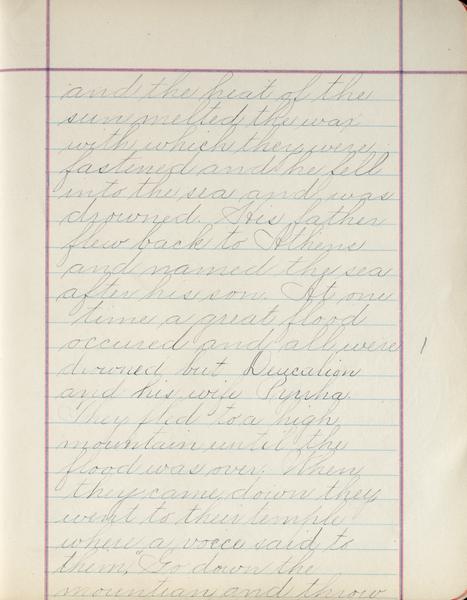 and the heat of the
sun melted the wax
with which they were
fastened and he fell
into the sea and was
drowned. His father
flew back to Athens
and named the sea
after his son. At one
time a great flood
occured and all were
drowned but Deucalion
and his wife Pyrrha.
They fled to a high
mountain until the
flood was over. When
they came down they
went to their temple
where a vocce said to
them, "Go down the
mountian and throw